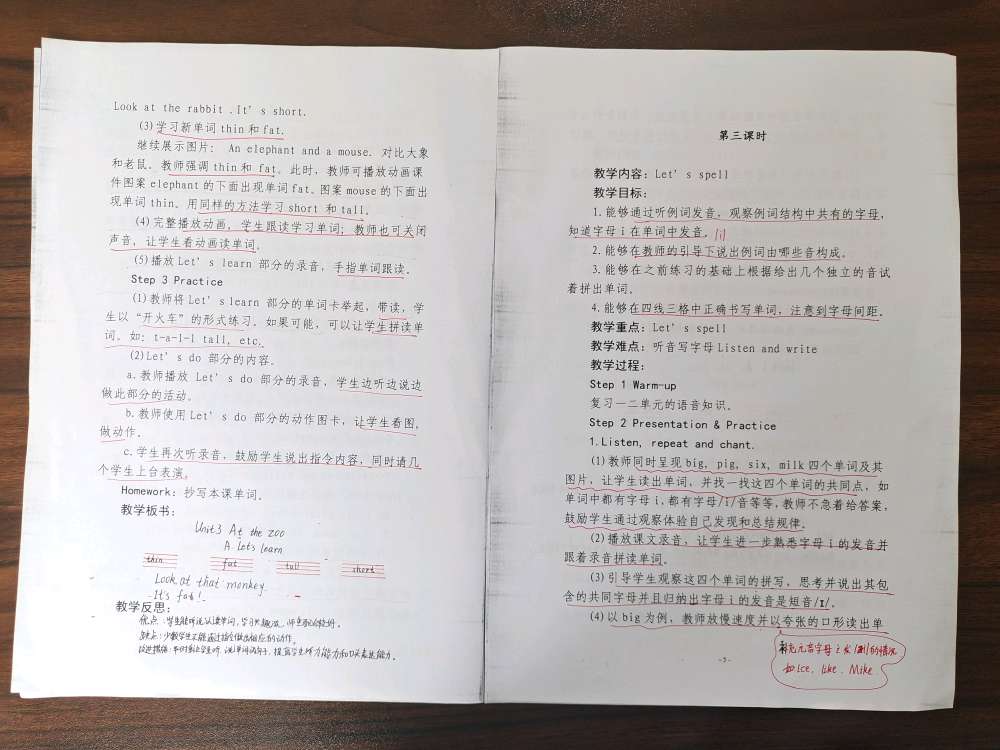 Look at the rabbit .It's short.
(3)学习新单词thin和fat.
继续展示图片: An elephant and a mouse. 对比大象
和老鼠. 教师强调thin和 fat。此时, 教师可播放动画课
件图案elephant的下面出现单词fat。图案mouse的下面出
现单词thin. 用同样的方法学习short 和tall。
(4)完整播放动画, 学生跟读学习单词; 教师也可关闭
声音, 让学生看动画读单词。
(5)播放Let's learn 部分的录音, 手指单词跟读.
Step 3 Practice
(1)教师将Let's learn 部分的单词卡举起, 带读, 学
生以“开火车”的形式练习. 如果可能, 可以让学生拼读单
词。如: t-a-l-l tall, etc.
(2)Let's do 部分的内容.
a.教师播放 Let's do 部分的录音, 学生边听边说边
做此部分的活动。
b.教师使用Let's do 部分的动作图卡, 让学生看图,
做动作.
c.学生再次听录音, 鼓励学生说出指令内容, 同时请几
个学生上台表演。
Homework: 抄写本课单词.
教学板书:
Unit3 At the zoo
A Let's learn
thin fat tall short
Look at that monkey.
It's fat!
教学反思:
优点: 学生能听说认读单词,
缺点: 少数学生不能通过指令做出相应的动作。
改进措施: 提高学生听力能力和口头表达能力。
第三课时
教学内容: Let's spell
教学目标:
1.能够通过听例词发音, 观察例词结构中共有的字母,
知道字母i在单词中发音。 |i|
2.能够在教师的引导下说出例词由哪些音构成。
3.能够在之前练习的基础上根据给出几个独立的音试
着拼出单词.
4.能够在四线三格中正确书写单词, 注意到字母间距.
教学重点: Let's spell
教学难点: 听音写字母Listen and write
教学过程:
Step 1 Warm-up
复习一二单元的语音知识.
Step 2 Presentation & Practice
1.Listen, repeat and chant.
(1)教师同时呈现big, pig, six, milk四个单词及其
图片, 让学生读出单词, 并找一找这四个单词的共同点, 如
单词中都有字母i, 都有字母/I/音等等, 教师不急着给答案,
鼓励学生通过观察体验自己发现和总结规律.
(2)播放课文录音, 让学生进一步熟悉字母i的发音并
跟着录音拼读单词.
(3)引导学生观察这四个单词的拼写, 思考并说出其包
含的共同字母并且归纳出字母i的发音是短音/ɪ/.
(4)以big为例, 教师放慢速度并以夸张的口形读出单
补充元音字母i发/ai/的情况
如.Ice, like, Mike.
-5-